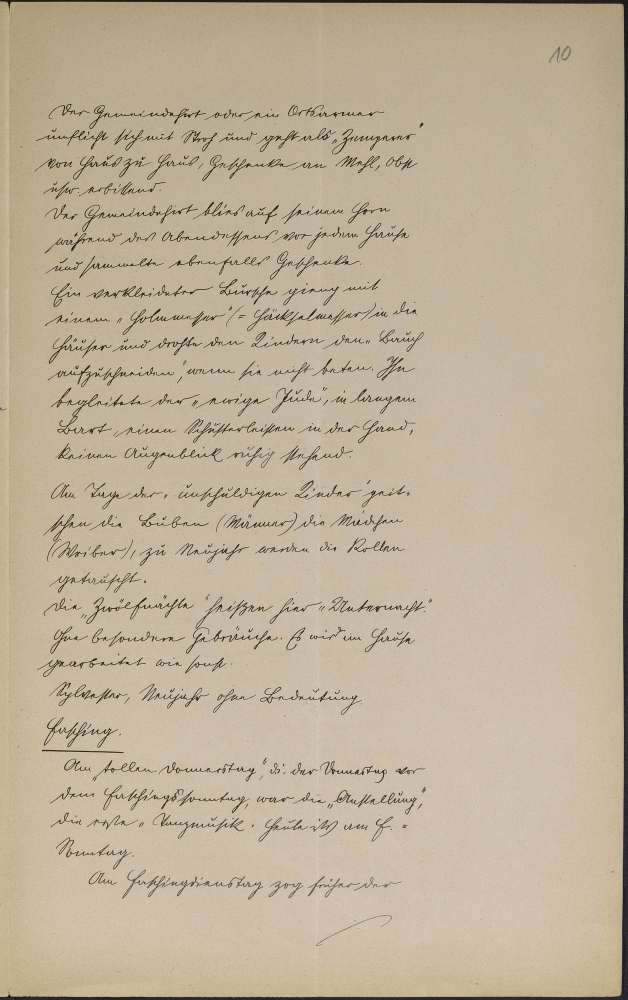 10
Der Gemeindehirt oder ein Ortsarmer
umflicht sich mit Stroh und geht als „Zemperer"
von Haus zu Haus, Geschenke an Mehl, Obst
usw. erbittend.
Der Gemeindehirt blies auf seinem Horn
während des Abendessens vor jedem Hause
und sammelte ebenfalls Geschenke.
Ein verkleideter Bursche gieng mit
einem „Holmmesser" (= Häckselmesser) in die
Häuser und drohte den Kindern den „Bauch
aufzuschneiden", wenn sie nicht beten. Ihn
begleitete der „ewige Jude", in langem
Bart, einen Schusterleisten in der Hand,
keinen Augenblick ruhig stehend.
Am Tage der „unschuldigen Kinder" peit-
schen die Buben (Männer) die Mädchen
(Weiber), zu Neujahr werden die Rollen
getauscht.
Die „Zwölfnächte" heißen hier „Unternacht".
Ohne besondere Gebräuche. Es wird im Hause
gearbeitet wie sonst.
Sylvester, Neujahr ohne Bedeutung
Fasching.
Am „tollen Donnerstag", di. der Donnerstag vor
dem Faschingssonntag, war die „Anstellung",
die erste „Tanzmusik. Heute ists am F.-
Sonntag.
Am Faschingdienstag zog früher der